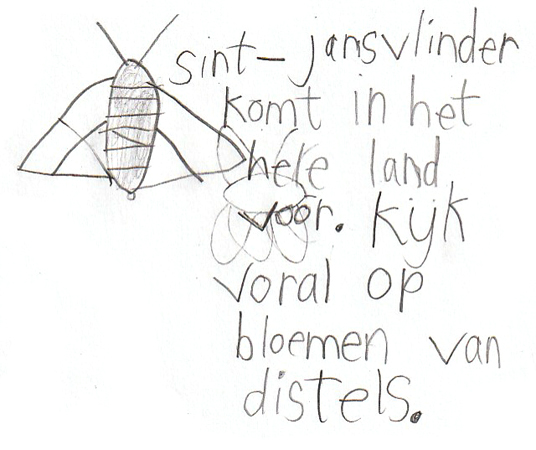 sint-jansvlinder
komt in het
hele land
voor. kijk
voral op
bloemen van
distels.